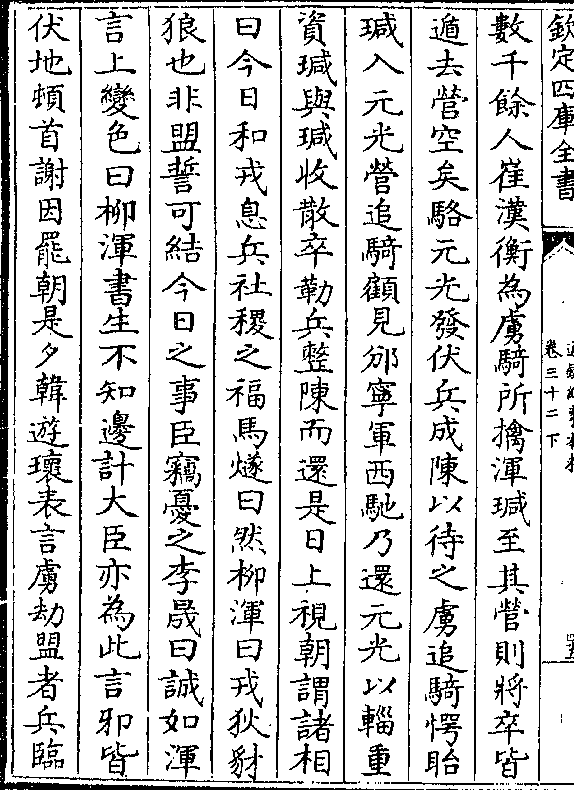 欽定四庫全書
卷三十二下
數千餘人崔漢衡為虜騎所擒渾瑊至其營則將卒皆
遁去營空矣駱元光發伏兵成陳以待之虜追騎愕眙
瑊入元光營追騎顧見邠寧軍西馳乃還元光以輜重
資瑊與瑊收散卒勒兵整陳而還是日上視朝謂諸相
曰今日和戎息兵社稷之福馬燧曰然柳渾曰戎狄豺
狼也非盟誓可結今日之事臣竊憂之李晟曰誠如渾
言上變色曰柳渾書生不知邊計大臣亦為此言邪皆
伏地頓首謝因罷朝是夕韓遊瓌表言虜劫盟者兵臨